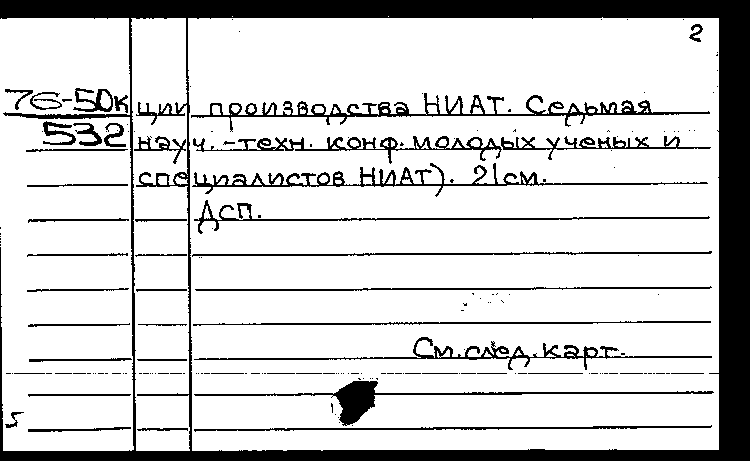 2
76-50к ции производства НИАТ. Седьмая
532 науч.-техн. конф. молодых ученых и
специалистов НИАТ). 21см.
Дсп.
См. след. карт.
5